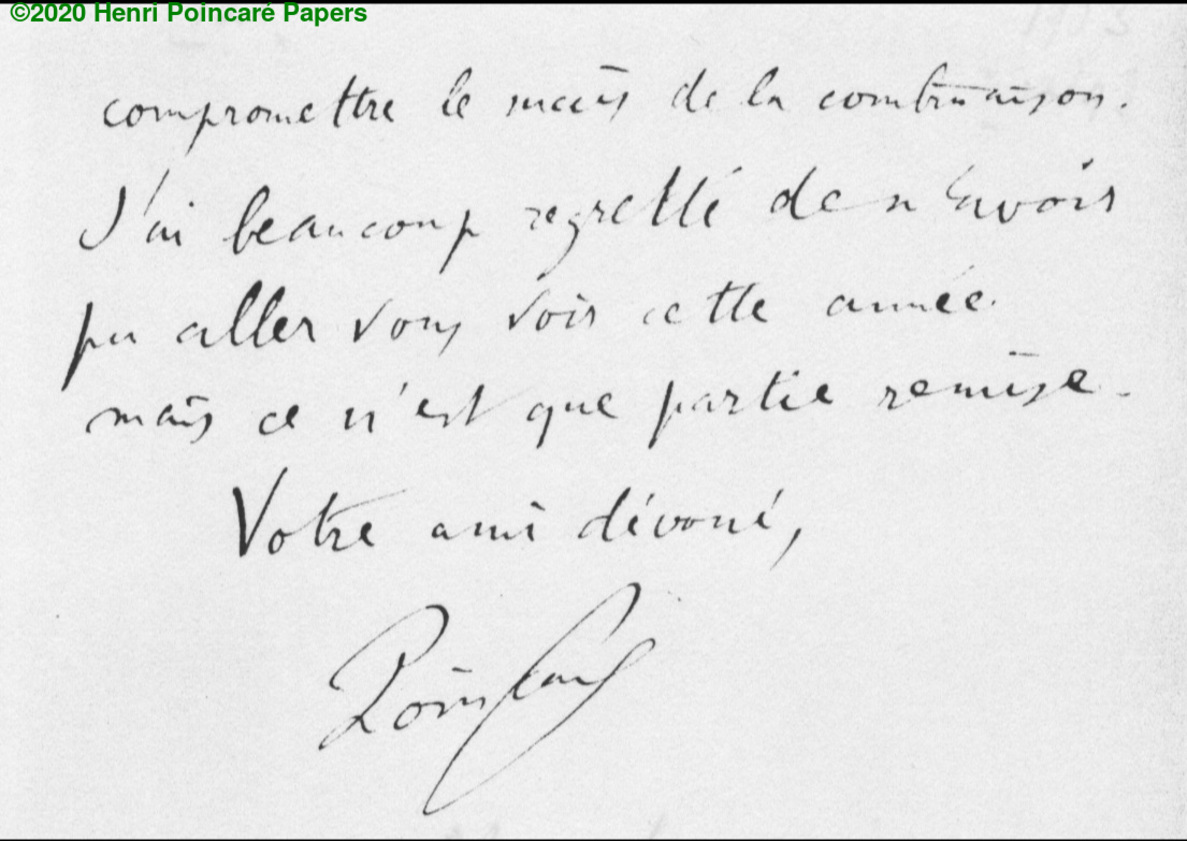 ©2020 Henri Poincaré Papers
compromettre le succès de la combinaison.
J'ai beaucoup regretté de n'avoir
pu aller vous voir cette année
mais ce n'est que partie remise.
Votre ami dévoué,
Poincaré